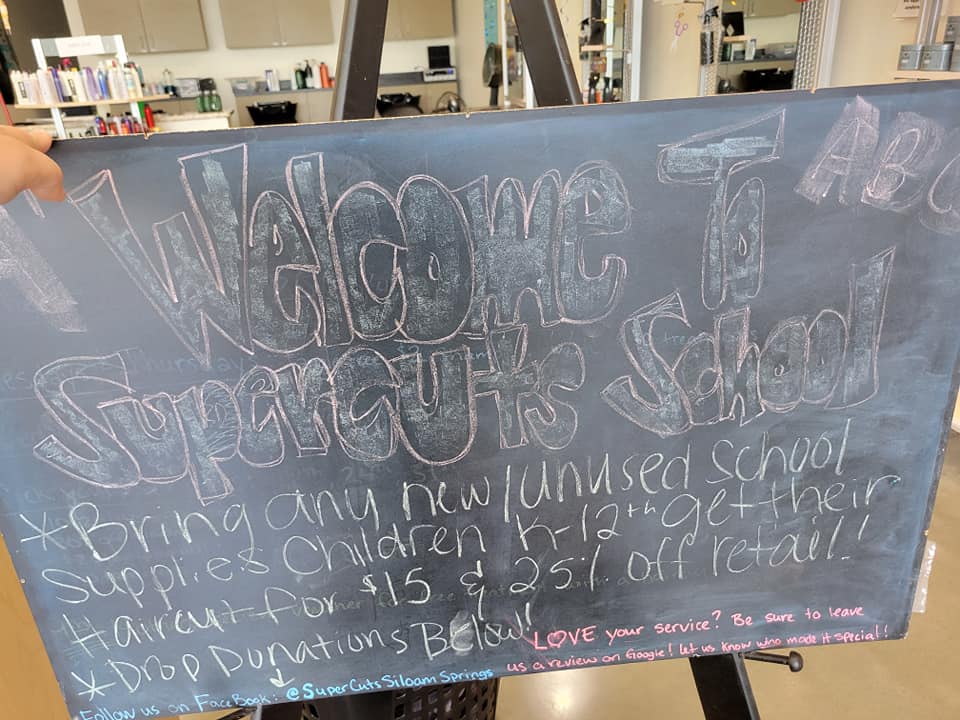 Welcome To
ABC
Supercuts School
*Bring any new/unused school
supplies Children K-12th get their
Haircut for $15 & 25% off retail!
*Drop Donations Below!
LOVE your service? Be sure to leave
us a review on Google! let us know who made it special!
Follow us on FaceBook: @SuperCutsSiloamSprings